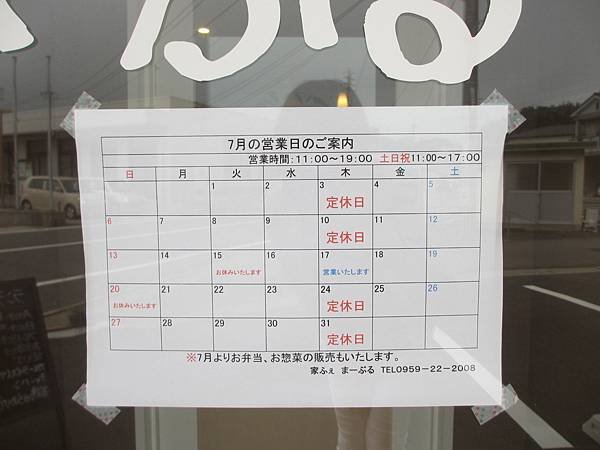 まーぶる
7月の営業日のご案内
営業時間：11:00～19:00 土日祝11:00～17:00
日 月 火 水 木 金 土
1 2 3 4 5
定休日
6 7 8 9 10 11 12
定休日
13 14 15 16 17 18 19
お休みいたします 営業いたします
20 21 22 23 24 25 26
お休みいたします 定休日
27 28 29 30 31
定休日
※7月よりお弁当、お惣菜の販売もいたします。
家ふぇ まーぶる TEL0959－22－2008